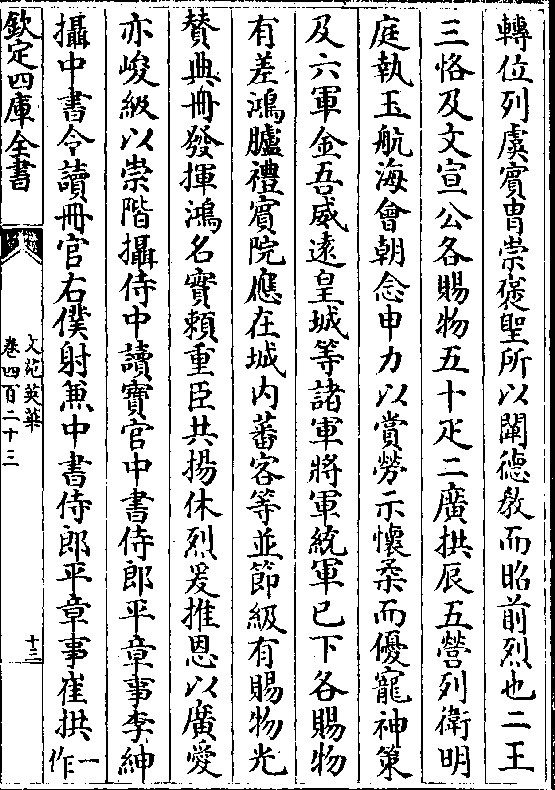 轉位列虞賓胄崇褒聖所以闡德教而昭前烈也二王
三恪及文宣公各賜物五十疋二廣拱辰五營列衛明
庭執玉航海會朝念申力以賞勞示懷柔而優寵神策
及六軍金吾威遠皇城等諸軍將軍統軍已下各賜物
有差鴻臚禮賓院應在城内蕃客等並節級有賜物光
賛典冊發揮鴻名實頼重臣共揚休烈爰推恩以廣愛
亦峻級以崇階攝侍中讀寶官中書侍郎平章事李紳
攝中書令讀冊官右僕射兼中書侍郎平章事崔拱一作
欽定四庫全書
文苑英華
卷四百二十三
十三